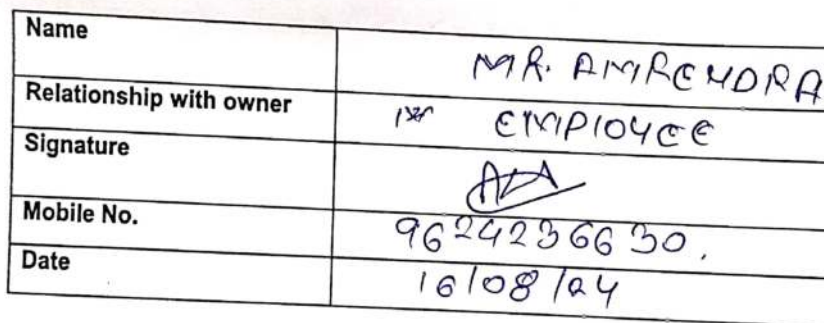 Name MR. AMRENDRA
Relationship with owner EMPLOYEE
Signature
Mobile No. 9624236630.
Date 16/08/24